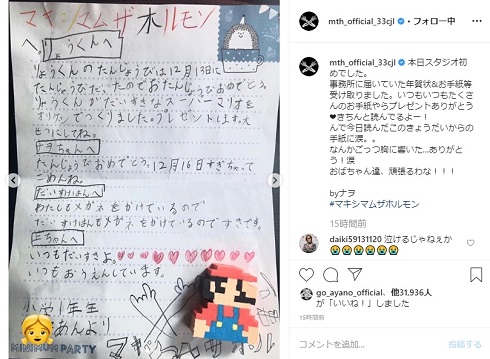 マキシマムザホルモン
へ。りょうくんへ
りょうくんのたんじょうびは12月13日に
たんじょうびだったのでおたんじょうびおめでとう。
りょうくんがだいすきなスーパーマリオを
でつくりました。プレゼントします。大
せつにしてね。
ナヲちゃんへ
たんじょうびおめでとう。12月16日すぎちゃって
ごめんね。
だいすけはんへ
わたしもメガネをかけているので
だいすけはんもメガネをかけているのですきです。
上ちゃんへ
いつもだいすきよ。
いつもおうえんしています。
小学1年生
あんより
MINIMUM PARTY
mth_official_33cjl • フォロー中
mth_official_33cjl 本日スタジオ初
めでした。
事務所に届いていた年賀状&お手紙等
受け取りました。いつもいつもたくさ
んのお手紙やらプレゼントありがとう
❤きちんと読んでるよー!
んで今日読んだこのきょうだいからの
手紙に涙。。
なんかごっつ胸に響いた...ありがと
う!涙
おばちゃん達、頑張るわな!!!
byナヲ
#マキシマムザホルモン
15時間前
daiki59131120 泣けるじゃねぇか
😭😭😭😭😭😭
go_ayano_official、他31,936人
が「いいね!」しました
15時間前